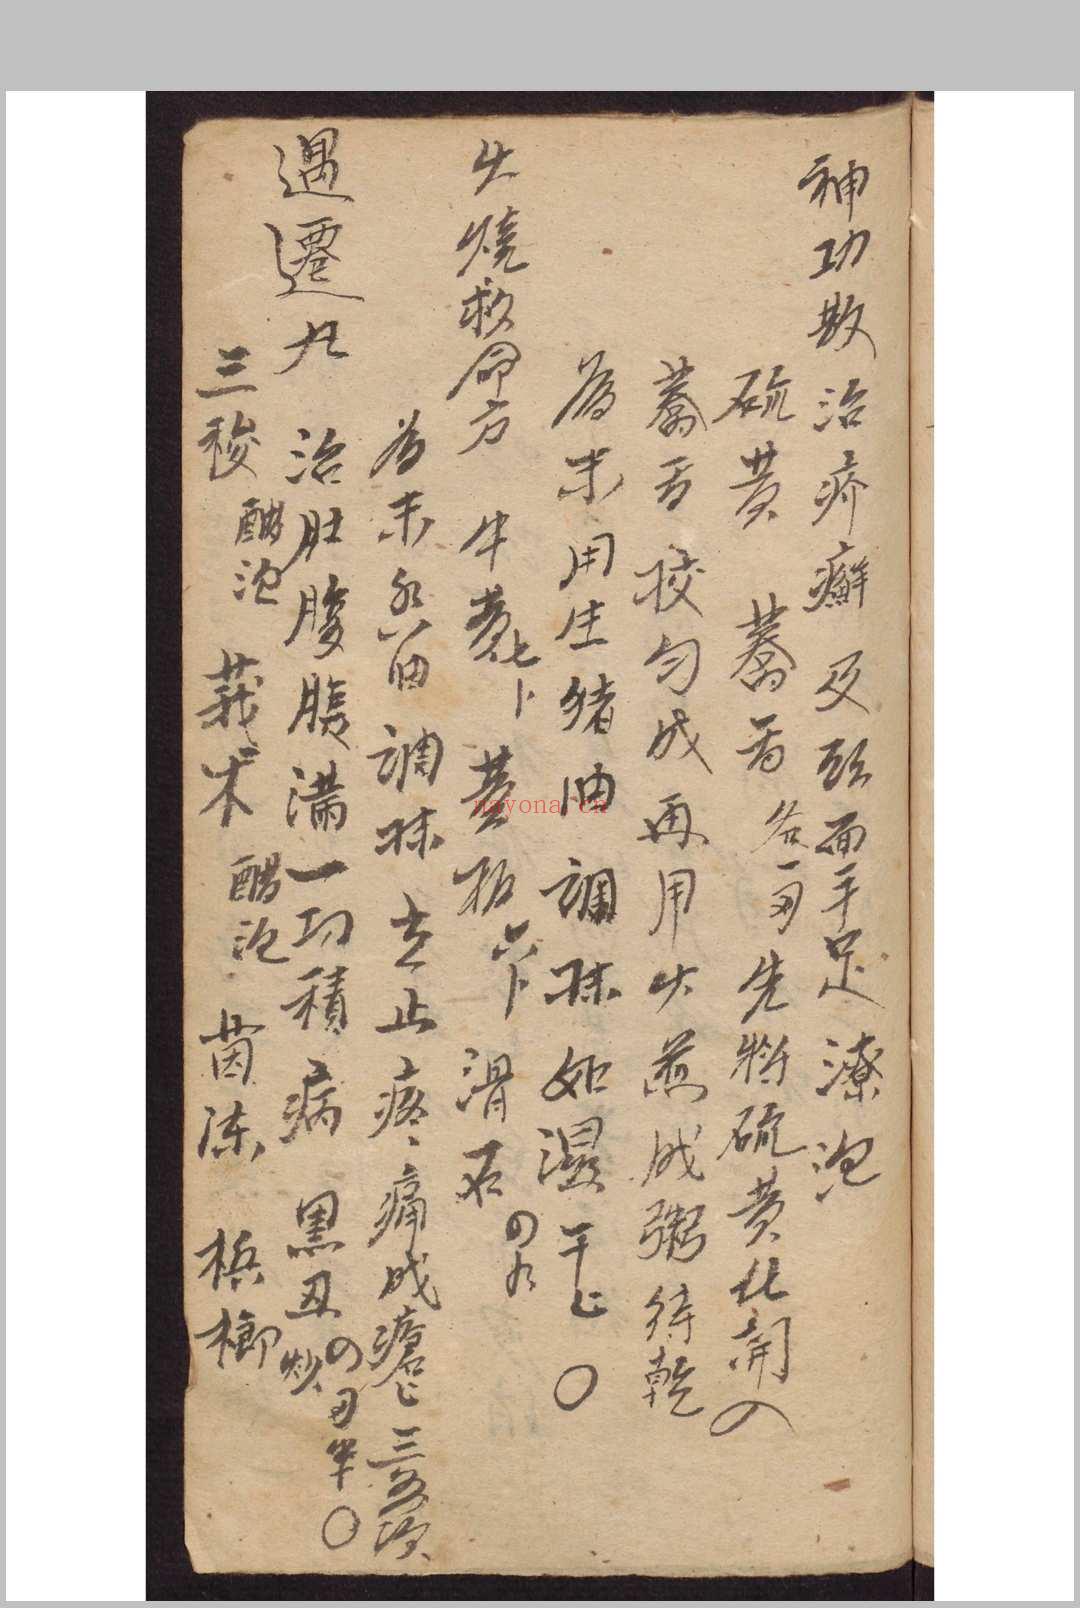 神功散 治疥癬及頭面手足潦泡
硫黄 蕎面 各一刃 先將硫黄化開入
蕎面 找勻成 再用火煎成粥待乾
為末 用生猪油調抹 如濕干上 〇
火燒救命方 牛黄 七卜 黄柏 六卜 滑石
為末 香油調抹 立止疼痛成瘡上三五次
遇遷丸 治肚腹脹滿一切積病 黒丑 炒 四刃半 〇
三稜 醋泡 莪术 醋泡 茵陈 梹榔
nayona.cn